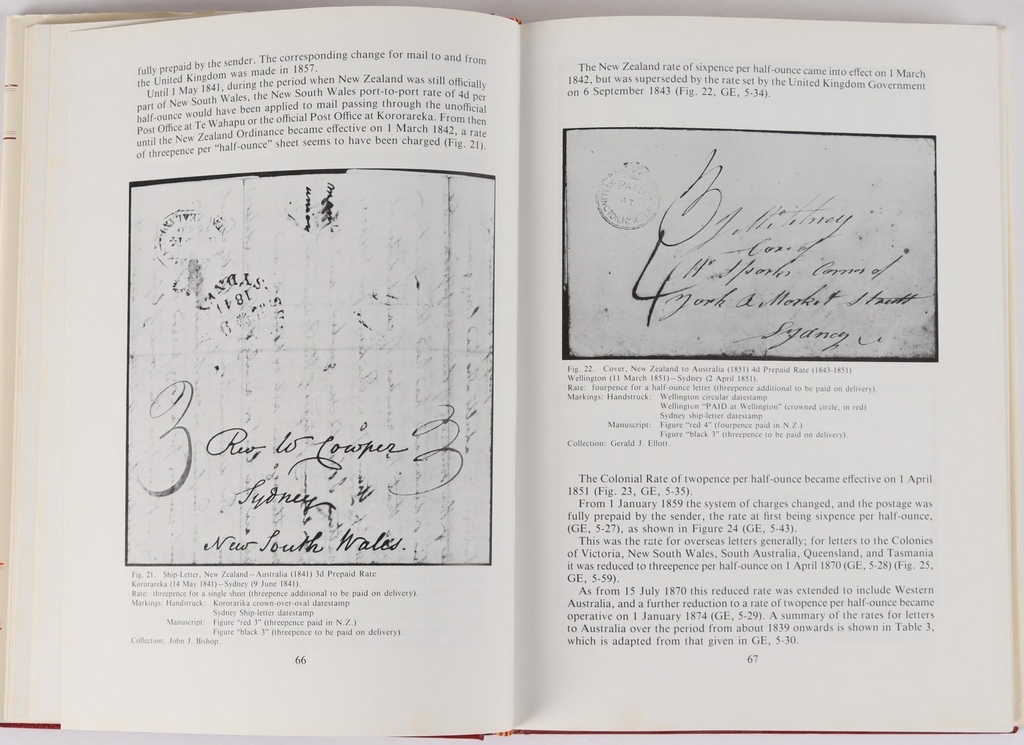 fully prepaid by the sender. The corresponding change for mail to and from
the United Kingdom was made in 1857.
Until 1 May 1841, during the period when New Zealand was still officially
part of New South Wales, the New South Wales port-to-port rate of 4d per
half-ounce would have been applied to mail passing through the unofficial
Post Office at Te Wahapu or the official Post Office at Kororareka. From then
until the New Zealand Ordinance became effective on 1 March 1842, a rate
of threepence per "half-ounce" sheet seems to have been charged (Fig. 21).
SYDNEY
1841
3
3
Rev W Cowper
Sydney
New South Wales.
Fig. 21. Ship-Letter, New Zealand – Australia (1841) 3d Prepaid Rate
Kororareka (14 May 1841) – Sydney (9 June 1841).
Rate: threepence for a single sheet (threepence additional to be paid on delivery).
Markings: Handstruck: Kororarika crown-over-oval datestamp
Sydney Ship-letter datestamp
Manuscript: Figure "red 3" (threepence paid in N.Z.)
Figure "black 3" (threepence to be paid on delivery).
Collection: John J. Bishop.
66
The New Zealand rate of sixpence per half-ounce came into effect on 1 March
1842, but was superseded by the rate set by the United Kingdom Government
on 6 September 1843 (Fig. 22, GE, 5-34).
PAID
AT
3
4
Care of
Mr Sparks Corner of
York & Market Street
Sydney
Fig. 22. Cover, New Zealand to Australia (1851) 4d Prepaid Rate (1843-1851)
Wellington (11 March 1851) – Sydney (2 April 1851).
Rate: fourpence for a half-ounce letter (threepence additional to be paid on delivery).
Markings: Handstruck: Wellington circular datestamp
Wellington "PAID at Wellington" (crowned circle, in red)
Sydney ship-letter datestamp
Manuscript: Figure "red 4" (fourpence paid in N.Z.)
Figure "black 3" (threepence to be paid on delivery).
Collection: Gerald J. Ellott.
The Colonial Rate of twopence per half-ounce became effective on 1 April
1851 (Fig. 23, GE, 5-35).
From 1 January 1859 the system of charges changed, and the postage was
fully prepaid by the sender, the rate at first being sixpence per half-ounce,
(GE, 5-27), as shown in Figure 24 (GE, 5-43).
This was the rate for overseas letters generally; for letters to the Colonies
of Victoria, New South Wales, South Australia, Queensland, and Tasmania
it was reduced to threepence per half-ounce on 1 April 1870 (GE, 5-28) (Fig. 25,
GE, 5-59).
As from 15 July 1870 this reduced rate was extended to include Western
Australia, and a further reduction to a rate of twopence per half-ounce became
operative on 1 January 1874 (GE, 5-29). A summary of the rates for letters
to Australia over the period from about 1839 onwards is shown in Table 3,
which is adapted from that given in GE, 5-30.
67